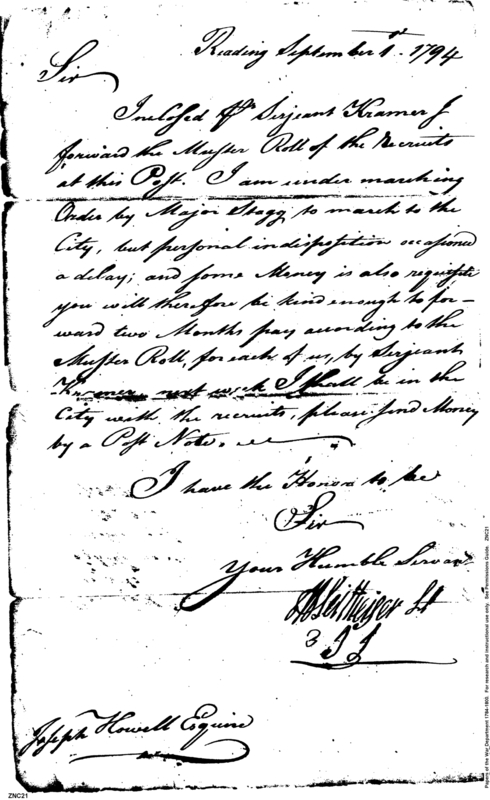 Reading September 1st. 1794
Sir
Inclosed pr Serjeant Kramer I
forward the Muster Roll of the Recruits
at this Post. I am under marching
Order by Major Stagg to march to the
City, but personal indisposition occasioned
a delay; and some Money is also requisite
you will therefore be kind enough to for-
ward two Months pay according to the
Muster Roll, for each of us, by Serjeant
Kramer, next week I shall be in the
City with the recruits, please send Money
by a Post Note.
I have the Honor to be
Sir
Your Humble Servant
Lt
3
Joseph Howell Esquire
ZNC21
Papers of the War Department 1784-1800. For research and instructional use only. See Permissions Guide. ZNC21